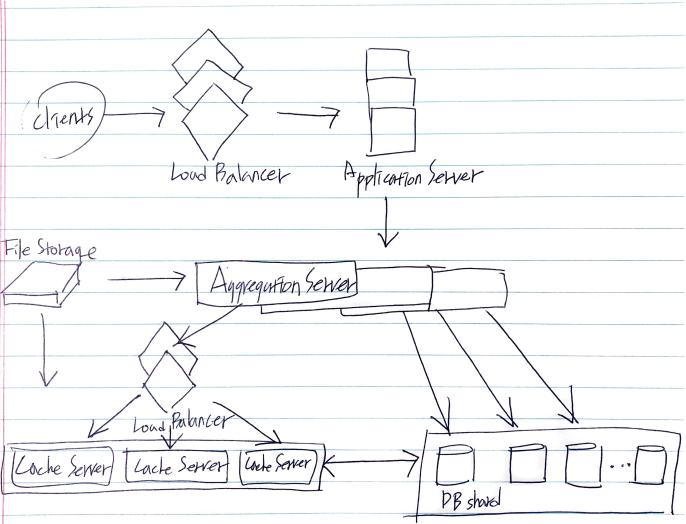 Clients
Load Balancer
Application Server
File Storage
Aggregation Server
Load Balancer
Cache Server
Cache Server
Cache Server
DB shared